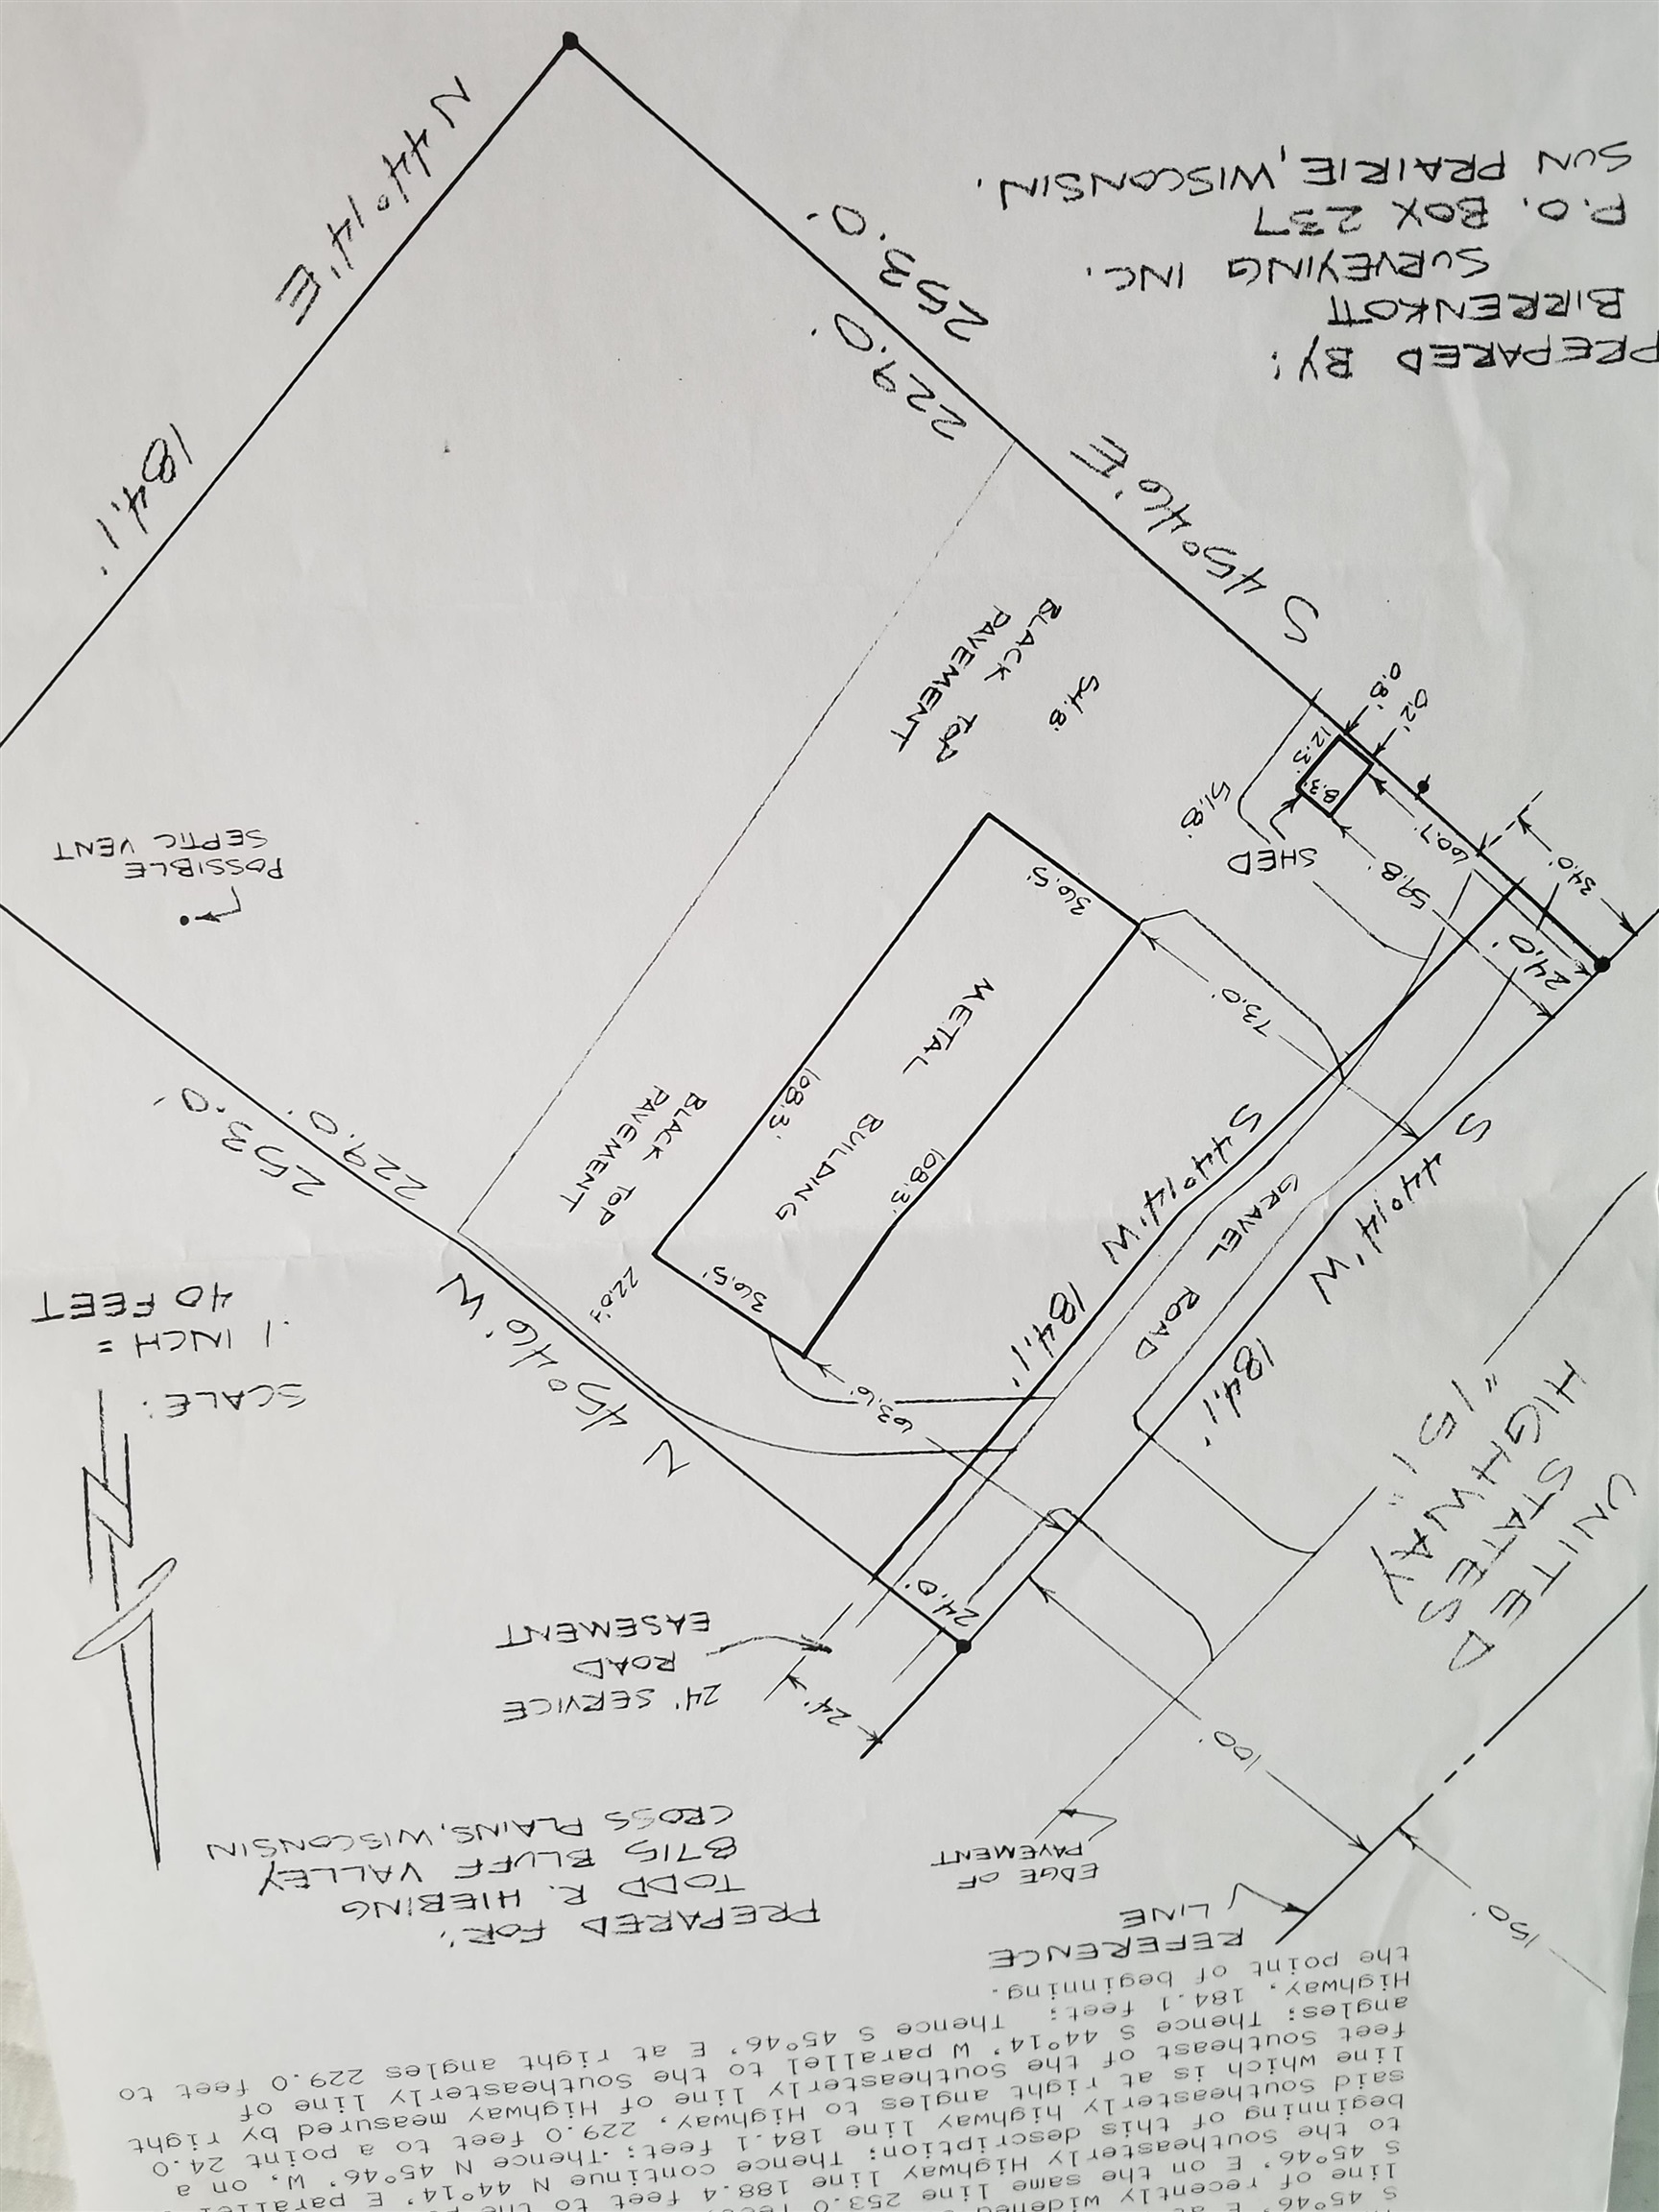 S 45°46' E at
line of recently widened
S 45°46'. E on the same line 253.0 feet
to the Southeasterly Highway line 188.4 feet to the
beginning of this description: Thence continue N 44°14' E parallel
said Southeasterly highway line 184.1 feet; Thence N 45°46' W, on a
line which is at right angles to Highway, 229.0 feet to a point 24.0
feet Southeast of the Southeasterly line of Highway measured by right
angles; Thence S 44°14' W parallel to the Southeasterly line of
Highway, 184.1 feet; Thence S 45°46' E at right angles 229.0 feet to
the point of beginning.
REFERENCE
LINE
150'
PREPARED FOR:
TODD R. HIEBING
8715 BLUFF VALLEY
CROSS PLAINS, WISCONSIN
EDGE OF
PAVEMENT
100'
24'
24' SERVICE
ROAD
EASEMENT
UNITED
STATES
HIGHWAY
"151"
24.0'
SCALE:
1 INCH =
40 FEET
N 45°46' W
253.0'
229.0'
63.6'
184.1'
S 44°14' W
184.1'
S 44°14' W
GRAVEL ROAD
36.5'
22.0'±
BLACK TOP
PAVEMENT
METAL BUILDING
108.3'
108.3'
73.0'
36.5'
24.0'
34.0'
POSSIBLE
SEPTIC VENT
SHED
59.8'
60.7'
8.3'
12.3'
0.2'
0.8'
51.8'
54.8'
BLACK TOP
PAVEMENT
S 45°46' E
229.0'
253.0'
184.1'
N 44°14' E
PREPARED BY:
BIRRENKOTT
SURVEYING INC.
P.O. BOX 237
SUN PRAIRIE, WISCONSIN.